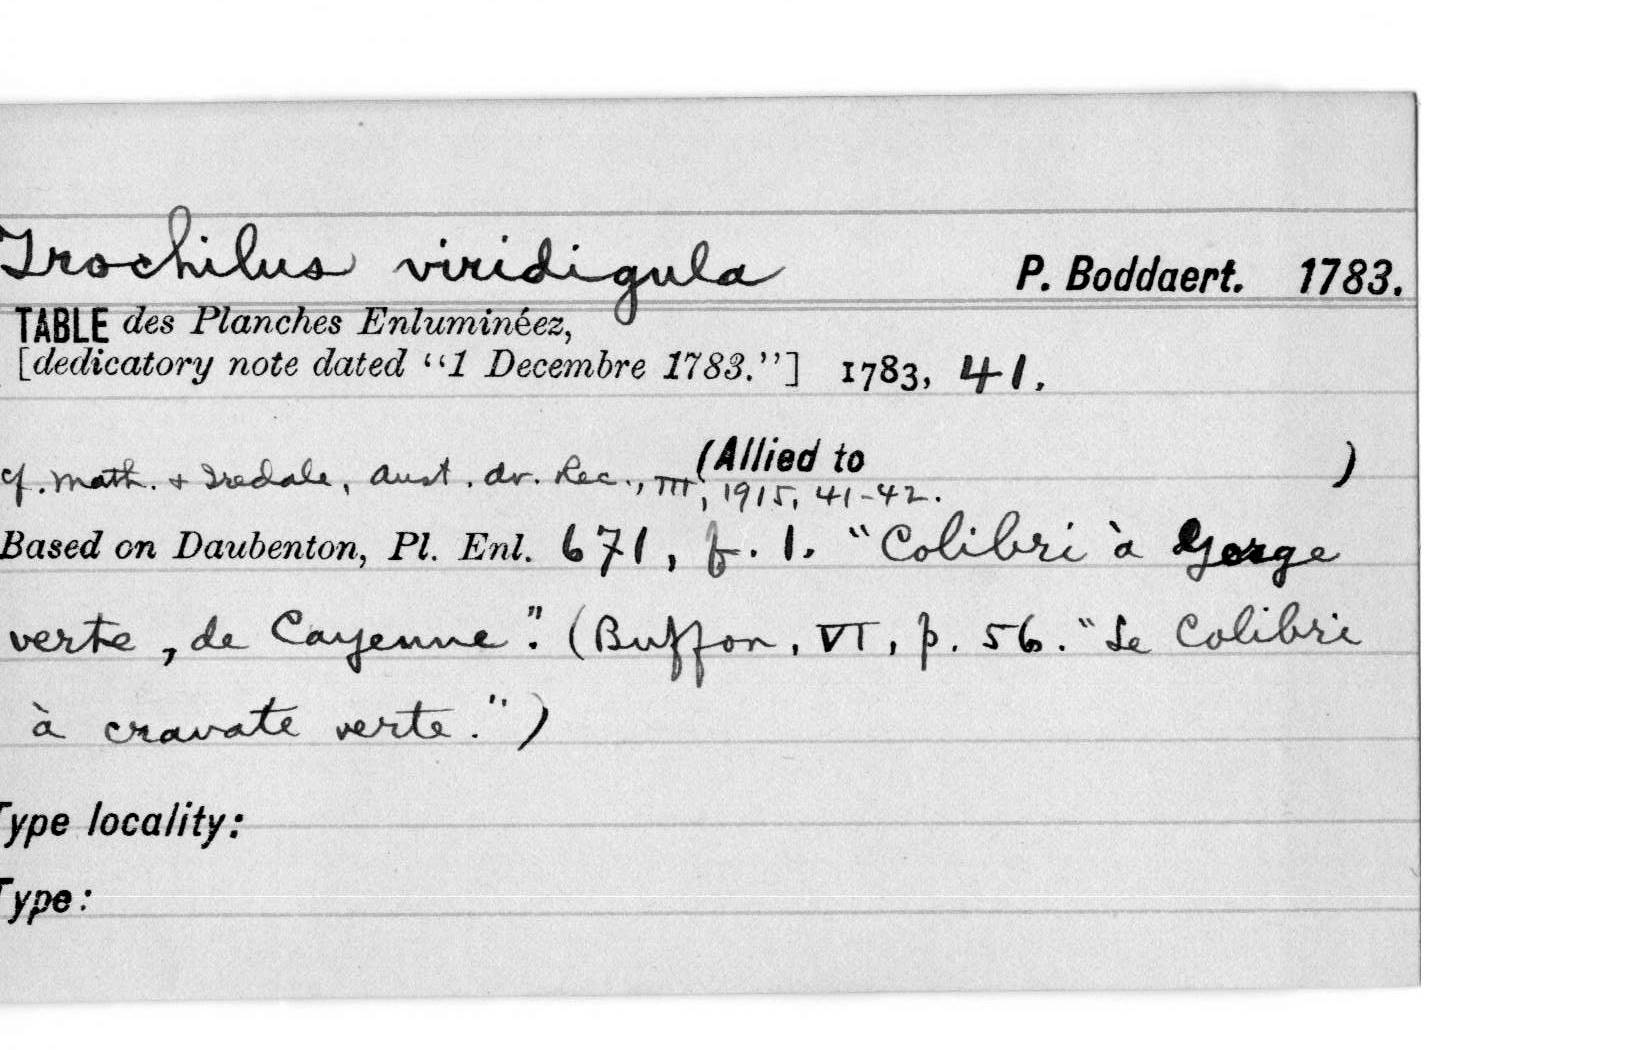 Trochilus viridigula P. Boddaert. 1783.
TABLE des Planches Enluminéez,
[dedicatory note dated “1 Decembre 1783.”] 1783, 41.
(Allied to )
cf. Math. + Iredale, Aust. Av. Rec., III, 1915, 41-42.
Based on Daubenton, Pl. Enl. 671, f. 1. "Colibri à Gorge
verte, de Cayenne". (Buffon, VI, p. 56. "Le Colibri
à cravate verte.")
Type locality:
Type: